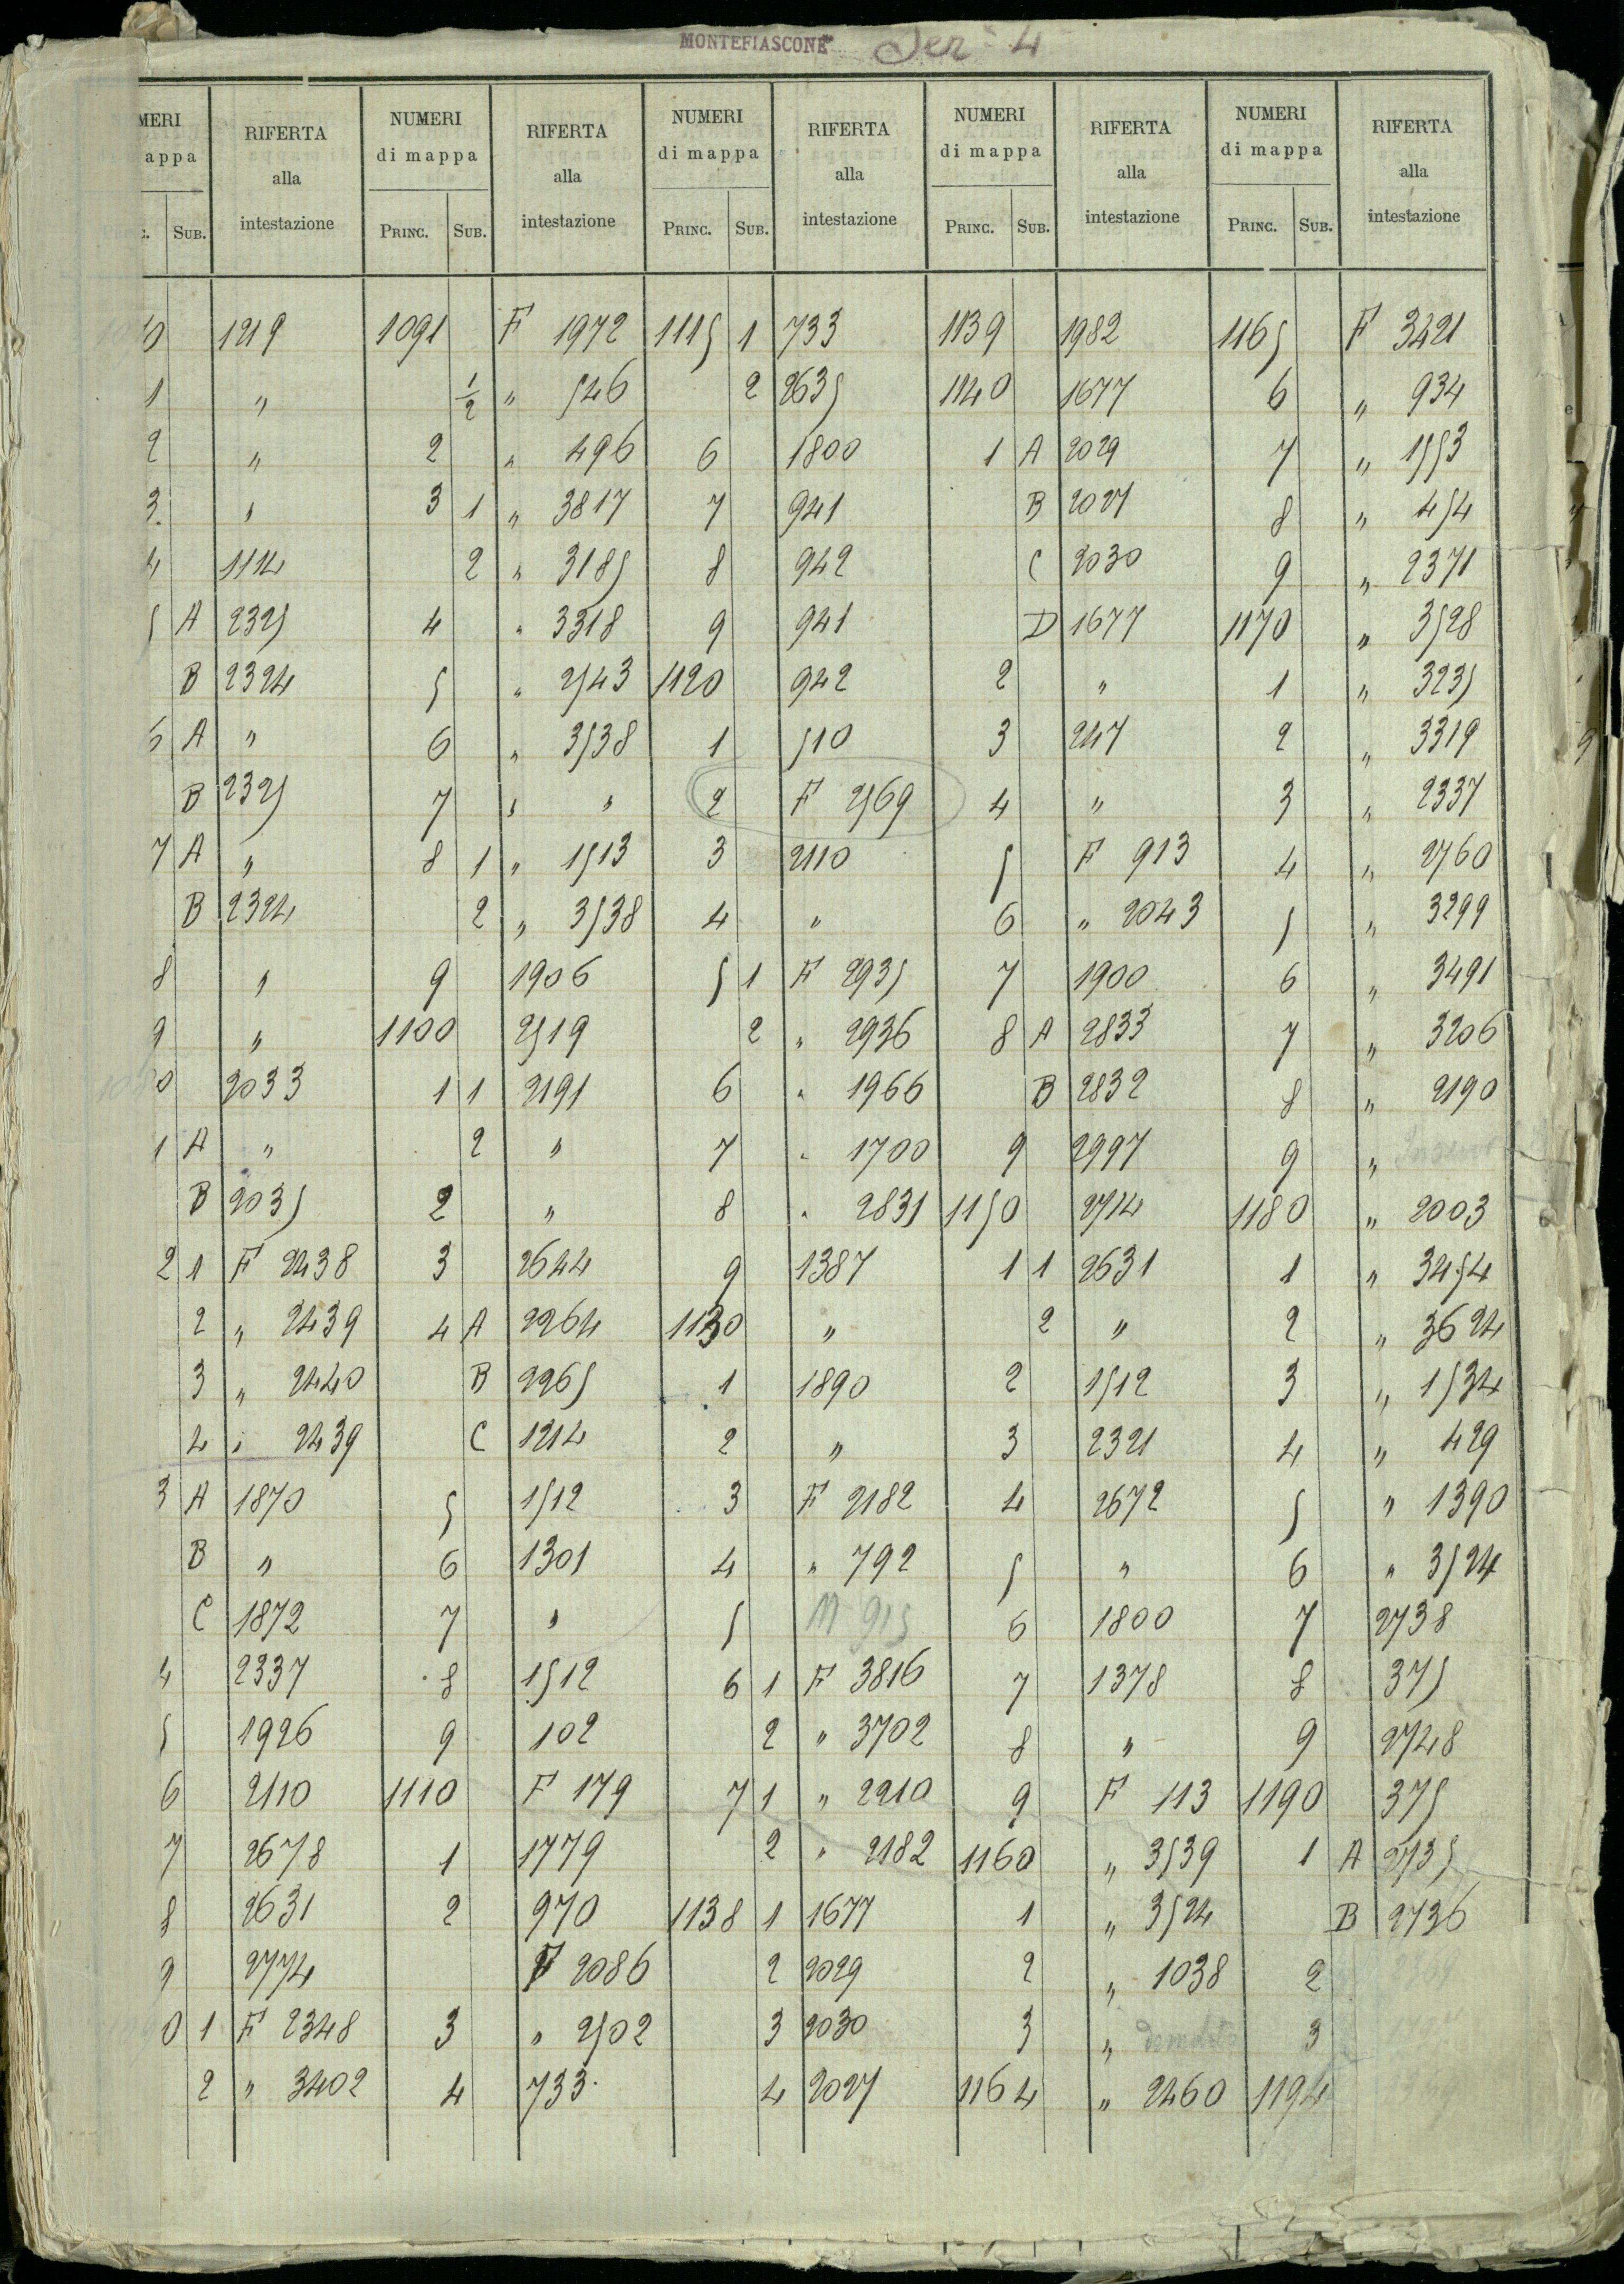 MONTEFIASCONE Sezᵉ 4
MERI RIFERTA NUMERI RIFERTA NUMERI RIFERTA NUMERI RIFERTA NUMERI RIFERTA
appa alla di mappa alla di mappa alla di mappa alla di mappa alla
SUB. intestazione PRINC. SUB. intestazione PRINC. SUB. intestazione PRINC. SUB. intestazione PRINC. SUB. intestazione
0 1219 1091 F 1972 1115 1 733 1139 1982 1165 F 3421
1 " 1/2 " 546 2 2635 1140 1677 6 " 934
2 " 2 " 496 6 1800 1 A 2029 7 " 1553
3. " 3 1 " 3817 7 941 B 2027 8 " 454
4 1114 2 " 3185 8 942 C 2030 9 " 2371
5 A 2325 4 " 3318 9 941 D 1677 1170 " 3528
B 2324 5 " 2543 1120 942 2 " 1 " 3235
6 A " 6 " 3538 1 510 3 247 2 " 3319
B 2325 7 " " 2 F 2569 4 " 3 " 2337
7 A " 8 1 " 1513 3 2110 5 F 913 4 " 2760
B 2324 2 " 3538 4 " 6 " 2043 5 " 3299
8 " 9 1906 5 1 F 2935 7 1900 6 " 3491
9 " 1100 2519 2 " 2936 8 A 2833 7 " 3206
0 2033 1 1 2191 6 " 1966 B 2832 8 " 2190
1 A " 2 " 7 " 1700 9 2997 9 "
B 2035 2 " 8 " 2831 1150 2714 1180 " 2003
2 1 F 2438 3 2644 9 1387 1 1 2631 1 " 3454
2 " 2439 4 A 2264 1130 " 2 " 2 " 3624
3 " 2440 B 2265 1 1890 2 1512 3 " 1534
4 " 2439 C 1214 2 " 3 2321 4 " 429
3 A 1870 5 1512 3 F 2182 4 2672 5 " 1390
B " 6 1301 4 " 792 5 " 6 " 3524
C 1872 7 " 5 M 915 6 1800 7 2738
4 2337 8 1512 6 1 F 3816 7 1378 8 375
5 1926 9 102 2 " 3702 8 " 9 2748
6 2110 1110 F 179 7 1 " 2210 9 F 113 1190 375
7 2678 1 1779 2 " 2182 1160 " 3539 1 A 2735
8 2631 2 970 1138 1 1677 1 " 3524 B 2736
9 2774 F 2086 2 2029 2 " 1038 2
0 1 F 2348 3 " 2502 3 2030 3 " 3
2 " 3402 4 733. 4 2027 1164 " 2460 1194